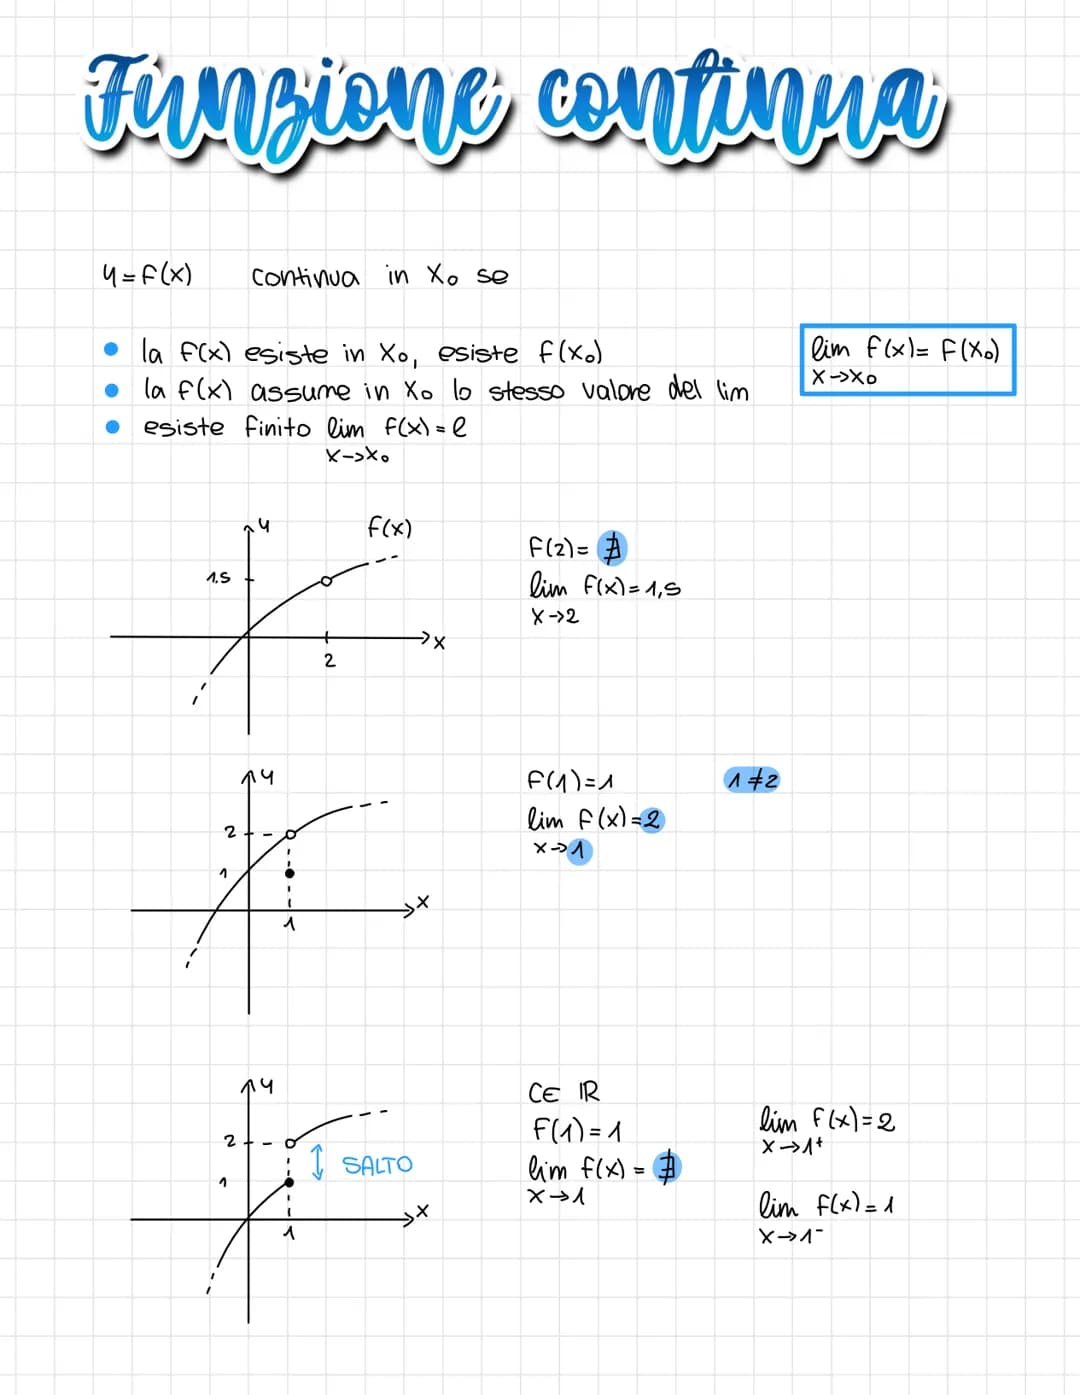 Funzione continua
y=f(x) continua in X₀ se
• la f(x) esiste in X₀, esiste f(x₀)
• la f(x) assume in X₀ lo stesso valore del lim
• esiste finito lim f(x)=l
x->x₀
lim f(x)= f(x₀)
x->x₀
y
f(x)
1.5
x
2
f(2)= ∄
lim f(x)=1,5
x->2
y
2
1
x
1
f(1)=1
1≠2
lim f(x)=2
x->1
y
2
SALTO
1
x
1
CE ℝ
f(1)=1
lim f(x) = ∄
x->1
lim f(x)=2
x->1⁺
lim f(x)=1
x->1⁻